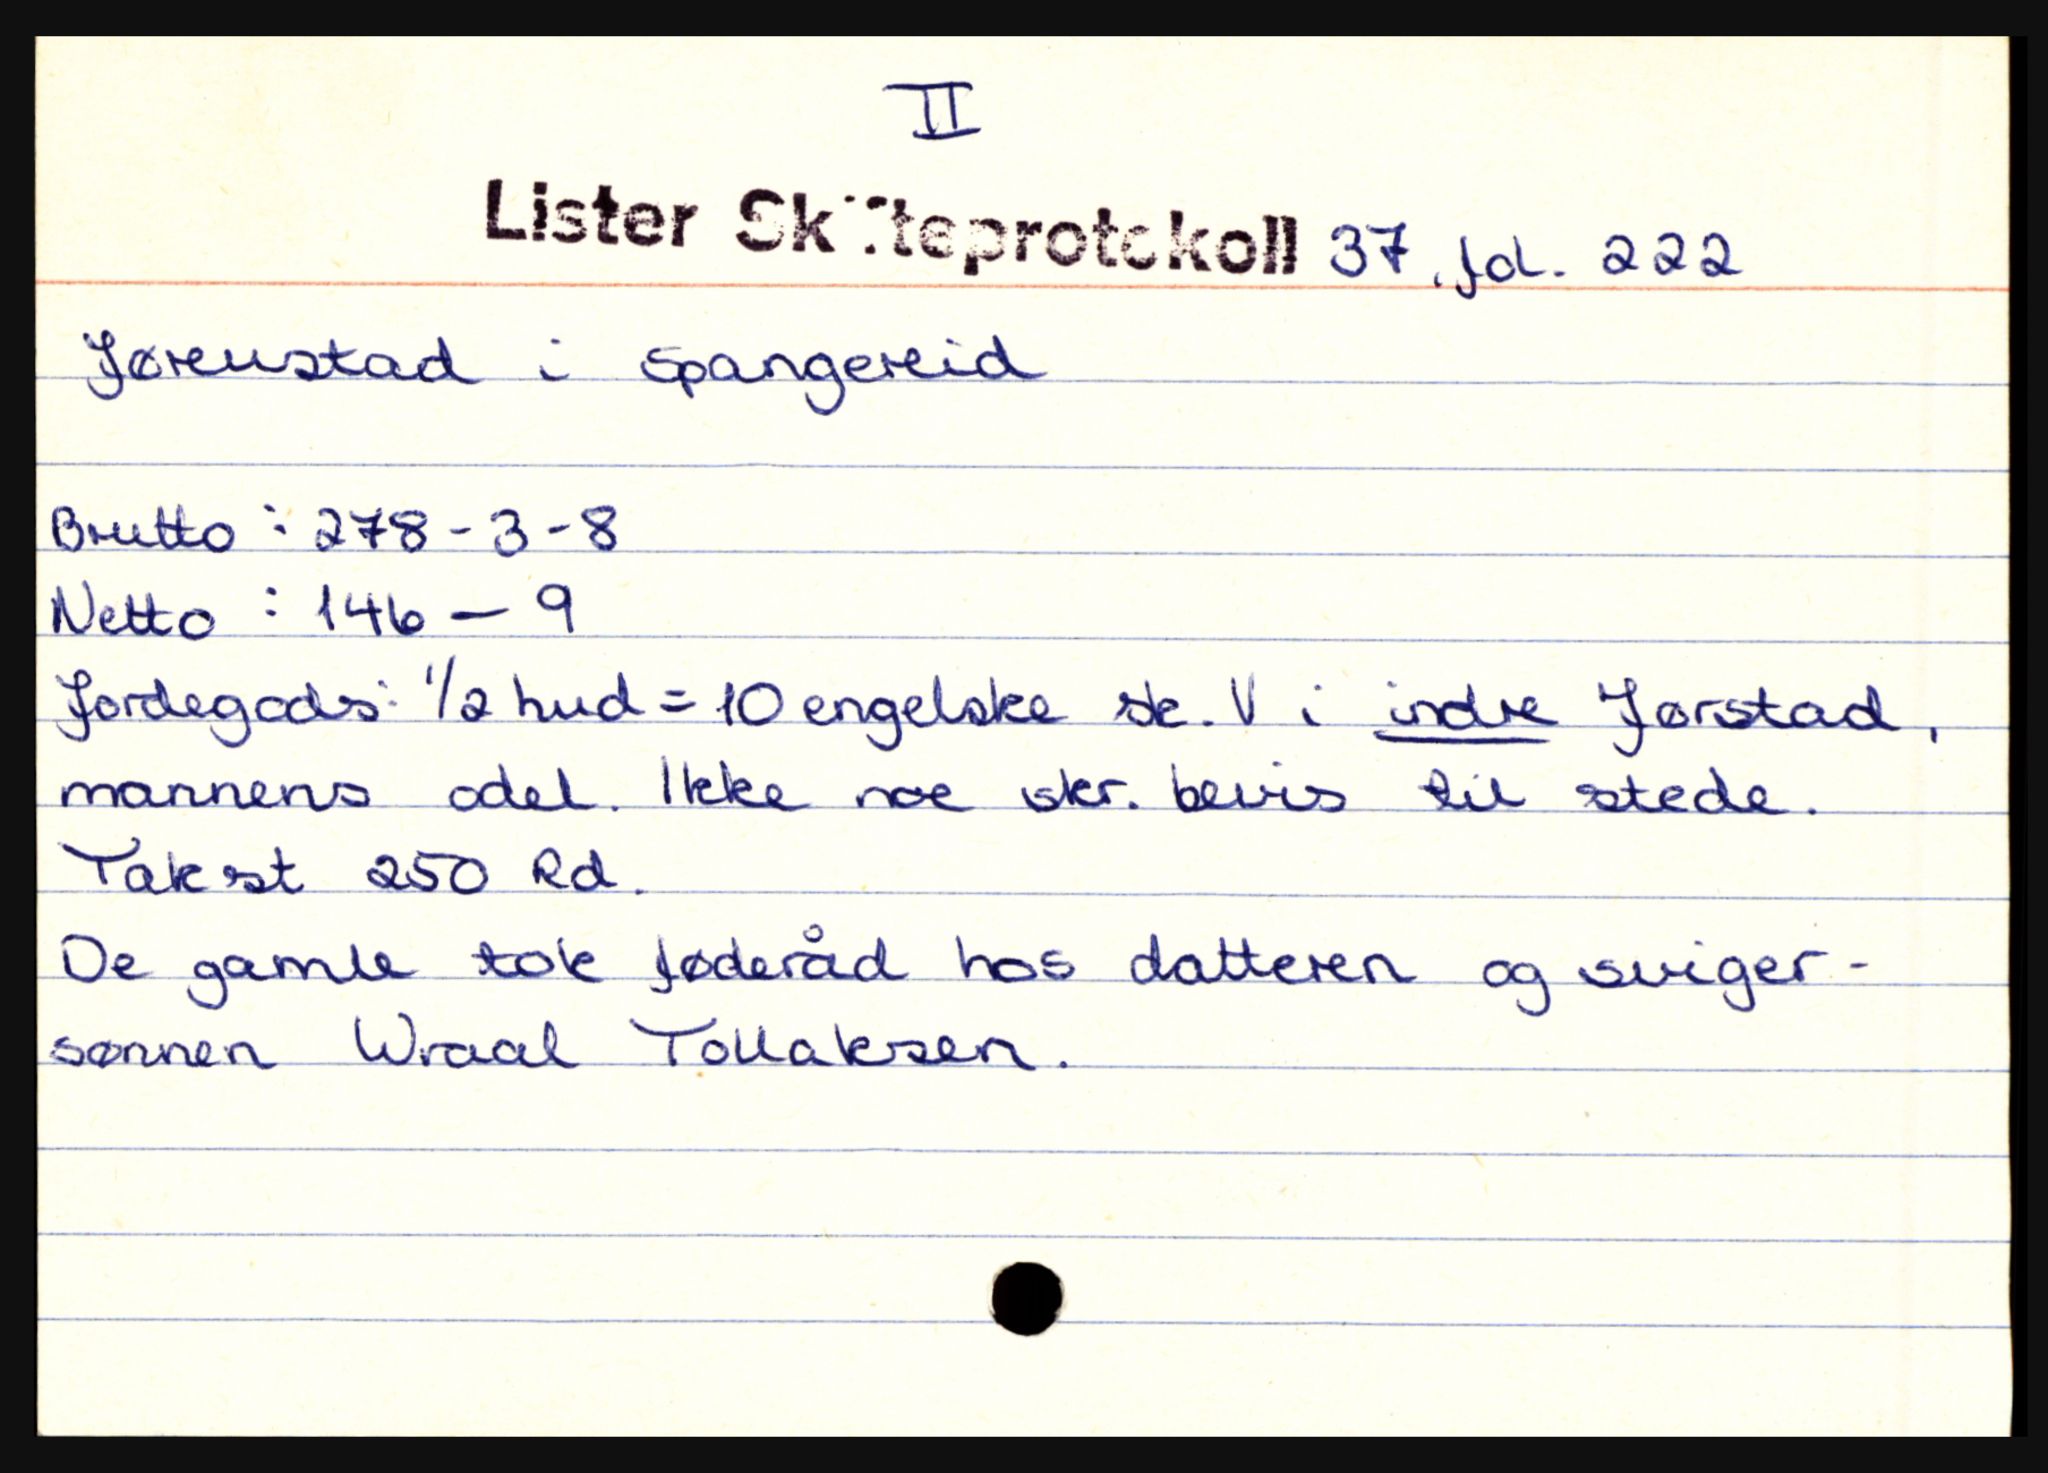 II
Lister Skifteprotokoll 37, fol. 222
Jørenstad i Spangereid
Brutto : 278-3-8
Netto : 146 — 9
Jordegods: 1/2 hud = 10 engelske sk. V i indre Jørstad,
mannens odel. Ikke noe skr. bevis til stede.
Takst 250 Rd.
De gamle tok føderåd hos datteren og sviger-
sønnen Wraal Tollaksen.